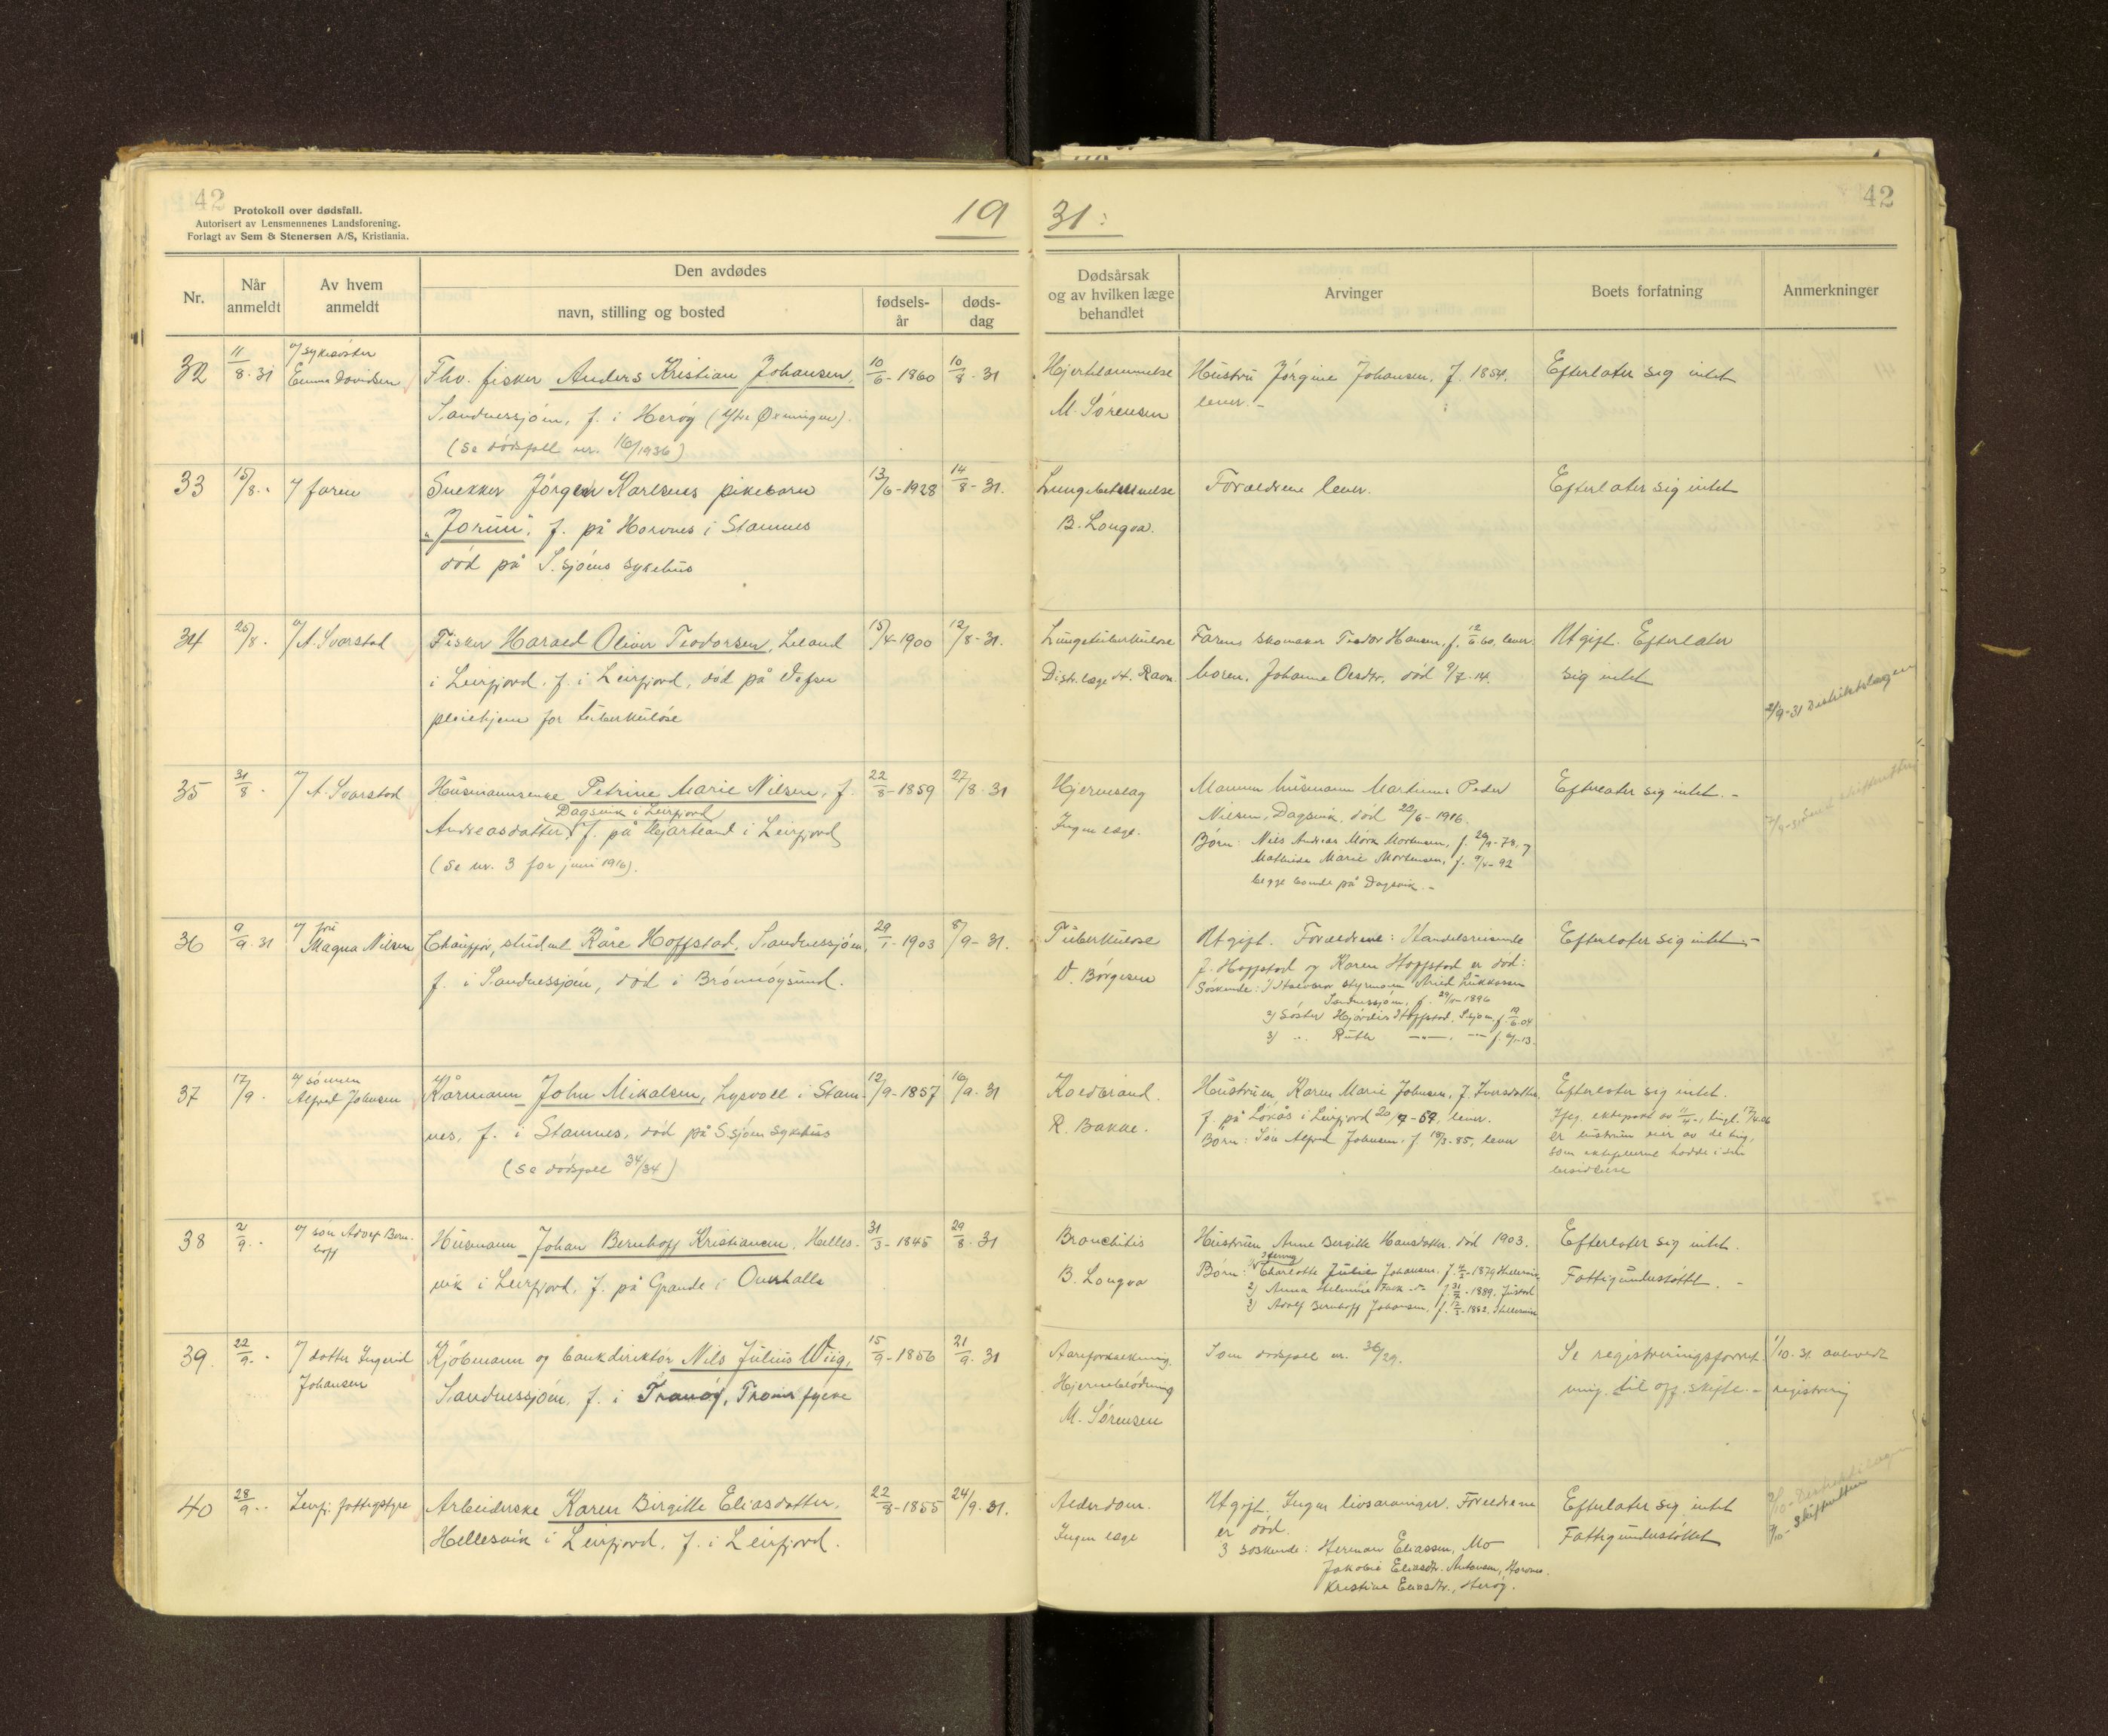 42
Protokoll over dødsfall.
Autorisert av Lensmennenes Landsforening.
Forlagt av Sem & Stenersen A/S, Kristiania.
19 31:
42
Nr.
Når anmeldt
Av hvem anmeldt
Den avdødes
navn, stilling og bosted
fødsels-år
døds-dag
Dødsårsak og av hvilken læge behandlet
Arvinger
Boets forfatning
Anmerkninger
32
11/8-31
Emma Davidsen
Fhv. fisker Anders Kristian Johansen,
Sandnessjøen, f. i Herøy
(Se dødsfall nr. 16/1936)
10/6-1860
10/8-31
Hjertelammelse
M. Sørensen
Hustru Jørgine Johansen, f. 1854.
lever.-
Efterlater sig intet
33
15/8-"
v/ faren
Snekker Jørgen Karlsens pikebarn
"Jorun", f. på Horvnes i Stamnes
død på S.sjøens sykehus
13/6-1928
14/8-31.
Lungebetennelse
B. Longva.
Forældrene lever.
Efterlater sig intet
34
25/8.
v/ A. Svarstad
Fisker Harald Oliver Teodorsen, Leland
i Leirfjord, f. i Leirfjord, død på Vefsn
pleiehjem for tuberkuløse
15/4-1900
12/8-31.
Lungetuberkulose
Distr.læge H. Ravn
Faren skomaker Teodor Hansen, f. 12/6 60, lever.
Moren, Johanne Olsdtr. død 9/7-14.
Ugift. Efterlater
sig intet
2/9-31 Distriktslægen
35
31/8.
v/ A. Svarstad
Husmannsenke Petrine Marie Nilsen, f.
Dagsvik i Leirfjord
Andreasdatter, f. på Hjartland i Leirfjord
(Se nr. 3 for juni 1916).
22/8-1859
27/8-31
Hjerneslag
Ingen læge.
Mannen husmann Martinus Peder
Nilsen, Dagsvik, død 22/6-1916.
Børn: Nils Andreas Mørk Mortensen, f. 29/9-78, og
Mathilde Marie Mortensen, f. 9/4-92
begge boende på Dagsvik.-
Efterlater sig intet.-
36
9/9-31
v/ fru
Magna Nilsen
Chauffør, student Kåre Hoffstad, Sandnessjøen,
f. i Sandnessjøen, død i Brønnøysund.
29/1-1903
8/9-31.
Tuberkulose
V. Børgesen
Ugift. Forældrene: Handelsreisende
J. Hoffstad og Karen Hoffstad er død:
Søskende: 1) Halvbror styrmann Lukkassen
Sandnessjøen, f. 1896
2) Søster Hjørdis Hoffstad, S.sjøen, f. 04
3) " Ruth f. 13.
Efterlater sig intet.-
37
17/9.
v/ sønnen
Alfred Johnsen
Kårmann John Mikalsen, Lysvoll i Stam-
nes, f. i Stamnes, død på S.sjøen sykehus
(Se dødsfall 34/34)
12/9-1857
16/9-31
Koldbrand.
R. Bakke.
Hustruen, Karen Marie Johnsen, f. Iversdatter,
f. på Løkås i Leirfjord 20/9-59, lever.
Børn: Søn Alfred Johnsen, f. 18/3-85, lever
Efterlater sig intet.
Ifølg ektepakt av
er hustruen eier av de ting,
som ektefellerne hadde i sin
besiddelse
38
2/9.
v/ søn Adolf Bern-
hoff
Husmann Johan Bernhoff Kristiansen, Helles-
vik i Leirfjord, f. på Grande i Overhalla
31/3-1845
29/8-31
Bronchitis
B. Longva
Hustruen Anne Birgitte Hansdatter, død 1903.
Børn: 1) Charlotte Julie Johansen, f. 1879 Hellesvik
2) Anna f. 1889,
3) Adolf Bernhoff Johansen, f. 1882, Hellesvik
Efterlater sig intet.
Fattigunderstøttet.-
39.
22/9-"
v/ datter Ingerid
Johansen
Kjøbmann og bankdirektør Nils Julius Wiig,
Sandnessjøen, f. i Tranøy, Troms fylke
15/9-1856
21/9-31
Aareforkalkning.
Hjerneblødning
M. Sørensen
Som dødsfall nr. 36/29.
Se registreringsforret-
ning til off. skifte.-
1/10-31 anhvendt
registrering
40
28/9-"
Leirfj. fattigstyre
Arbeiderske Karen Birgitte Eliasdatter,
Hellesvik i Leirfjord, f. i Leirfjord.
22/8-1855
24/9-31.
Alderdom.
Ingen læge
Ugift. Ingen livsarvinger. Forældrene
er død.
3 søskende: Herman Eliassen, Mo
Jakobie Eliasdtr. Antonsen, Horvnes.
Kristine Eliasdtr., Herøy.
Efterlater sig intet
Fattigunderstøttet
Distriktslægen
Skifteretten